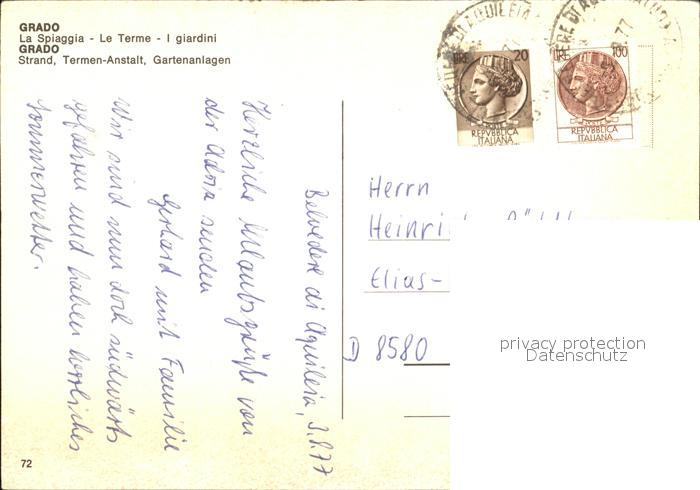 GRADO
La Spiaggia - Le Terme - I giardini
GRADO
Strand, Termen-Anstalt, Gartenanlagen
LIRE 20
REPVBBLICA
ITALIANA
LIRE 100
REPVBBLICA
ITALIANA
DI AQUILEIA
77
Belvedere di Aquileia, 3.8.77
Herzliche Urlaubsgrüße von
der Adria senden
Gerhard mit Familie
Wir sind nun doch südwärts
gefahren und haben herrliches
Sommerwetter.
Herrn
Heinri
Elias-
D 8580
privacy protection
Datenschutz
72